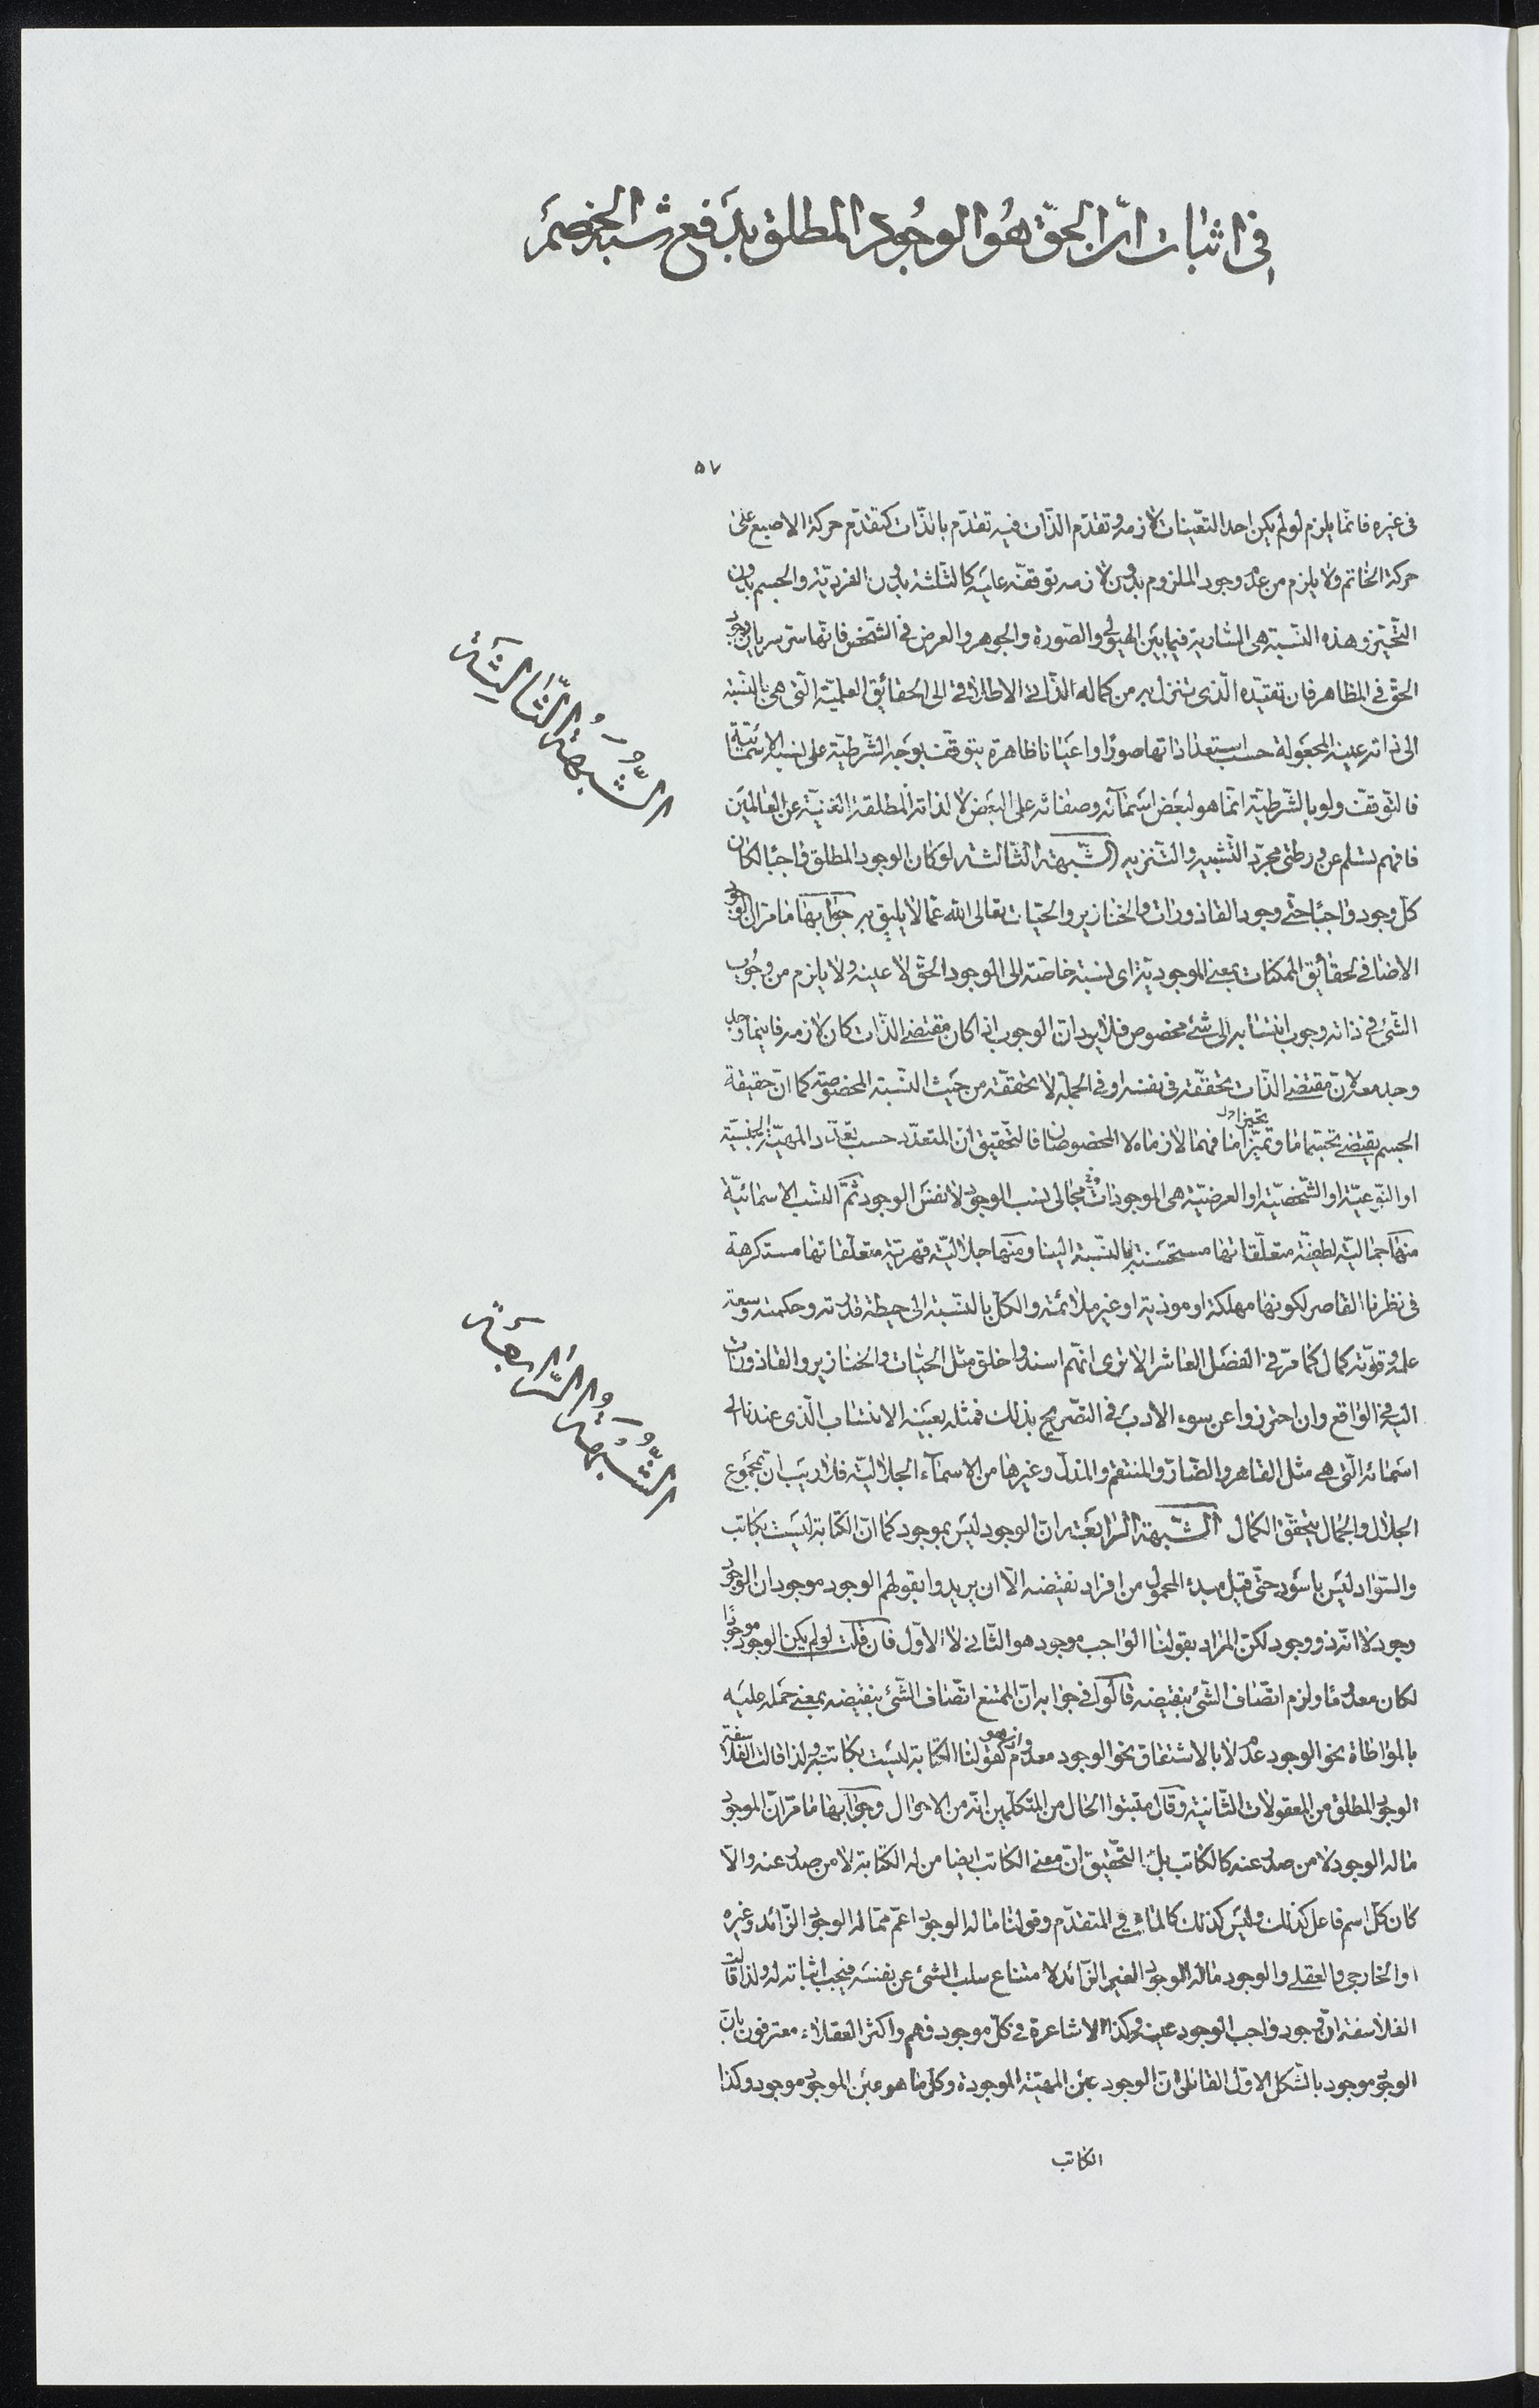 في اثبات انّ الحقّ هُوَ الوجُود المطلق بدَفع شبه الخصم
٥٧
في غيره فانما يلزم لو لم يكن احد التعينات لازمه وتقدّم الذّات فيه تقدّم بالذّات كتقدّم حركة الاصبع على
حركة الخاتم ولا يلزم من عدم وجود الملزوم بدون لازمه توقفه عليه كالثلثة بدون الفرديّة والجسم بدون
التحيّز وهذه النسبة هي السارية فيما بين الهيولى والصّورة والجوهر والعرض في الشخص فانها سرّ سريان وجود
الحق في المظاهر فان تقيّده الّذي تنزل به من كماله الذّاتي الاطلاقي الى الحقائق العلميّة الّتي هي بالنّسبة
الى ذاته عينه المجعولة حسب استعداداتها صورا او اعيانا ظاهرة يتوقف بوجه الشّرطيّة على نسبه الاسمائيّة
فالتوقف ولو بالشّرطيّة انّما هو لبعض اسمآئه وصفاته على البعض لا لذاته المطلقة الغنيّة عن العالمين
فافهم تسلم عن ورطتي مجرّد التّشبيه والتّنزيه الشّبهة الثّالثة لو كان الوجود المطلق واجبا لكان
كلّ وجود واجبا حتّى وجود القاذورات والخنازير والحيّات تعالى الله عمّا لا يليق به جوابها ما مرّ ان الوجود
الاضافي لحقائق الممكنات بمعنى الموجوديّة اي نسبة خاصّة الى الوجود الحقّ لا عينه ولا يلزم من وجوب
الشّئ في ذاته وجوب انتسابه الى شئ مخصوص فلا يرد انّ الوجوب اذا كان مقتضى الذّات كان لازمه فاينما وجد
وجد معه لانّ مقتضى الذّات تحققه في نفسه او في الجملة لا تحققه من حيث النّسبة المخصوصة كما انّ حقيقة
الجسم يقتضى تحيّزا ما وتميّزا ما فهما لازماه لا المخصوصان فالتحقيق ان المتعدّد حسب تعدّد المهيّة الجنسيّة
او النّوعيّة او الشّخصيّة او العرضيّة هي الموجودات مجالى نسب الوجود لا نفس الوجود ثمّ النسب الاسمائيّة
منها جماليّة لطفيّة متعلّقاتها مستحسنة بالنّسبة الينا ومنها جلاليّة قهريّة متعلّقاتها مستكرهة
في نظرنا القاصر لكونها مهلكة او موذية او غير ملائمة والكلّ بالنّسبة الى حيطة قدرته وحكمته وسعة
علمه وقوّته كمال كما مرّ في الفصل العاشر الا ترى انّهم اسندوا خلق مثل الحيّات والخنازير والقاذورات
اليه في الواقع وان احترزوا عن سوء الادب في التصريح بذلك فمثله بعينه الانتساب الّذي عندنا الى
اسمائه الّتي هي مثل القاهر والضّارّ والمنتقم والمذلّ وغيرها من الاسمآء الجلاليّة فلا ريب انّ بمجموع
الجلال والجمال يتحقّق الكمال الشّبهة الرّابعة انّ الوجود ليس بموجود كما انّ الكتابة ليست بكاتب
والسّواد ليس باسود حتّى قيل مبدء المحمول من افراد نقيضه الّا ان يريدوا بقولهم الوجود موجود ان الوجود
وجود لا انّه ذو وجود لكن المراد بقولنا الواجب موجود هو الثّاني لا الاوّل فان قلت لو لم يكن الوجود موجودا
لكان معدوما ولزم اتصاف الشّئ بنقيضه قالوا في جوابه انّ الممتنع اتصاف الشّئ بنقيضه بمعنى حمله عليه
بالمواطاة نحو الوجود عدم لا بالاشتقاق نحو الوجود معدوم كقولنا الكتابة ليست بكاتبة ولذا قالت الفلاسفة
الوجود المطلق من المعقولات الثّانية وقال مثبتوا الحال من المتكلّمين انّه من الاحوال وجوابها ما مرّ انّ الموجود
ما له الوجود لا من صدر عنه كالكاتب بل التّحقيق انّ معنى الكاتب ايضا من له الكتابة لا من صدر عنه والّا
كان كلّ اسم فاعل كذلك وليس كذلك كالماشي والمتقدّم وقولنا ما له الوجود اعمّ ممّا له الوجود الزّائد وغيره
او الخارجي والعقلي والوجود ما له الوجود الغير الزّائد لامتناع سلب الشئ عن نفسه فيجب اثباته له ولذا قالت
الفلاسفة انّ وجود واجب الوجود عينه وكذا الاشاعرة في كلّ موجود فهم واكثر العقلاء معترفون بانّ
الوجود موجود بالشّكل الاوّل القائل انّ الوجود عين المهيّة الموجودة وكلّ ما هو عين الموجود موجود وكذا
الكاتب
الشُّبهةُ الثَّالِثَة
الشُّبهةُ الرَّابعَة